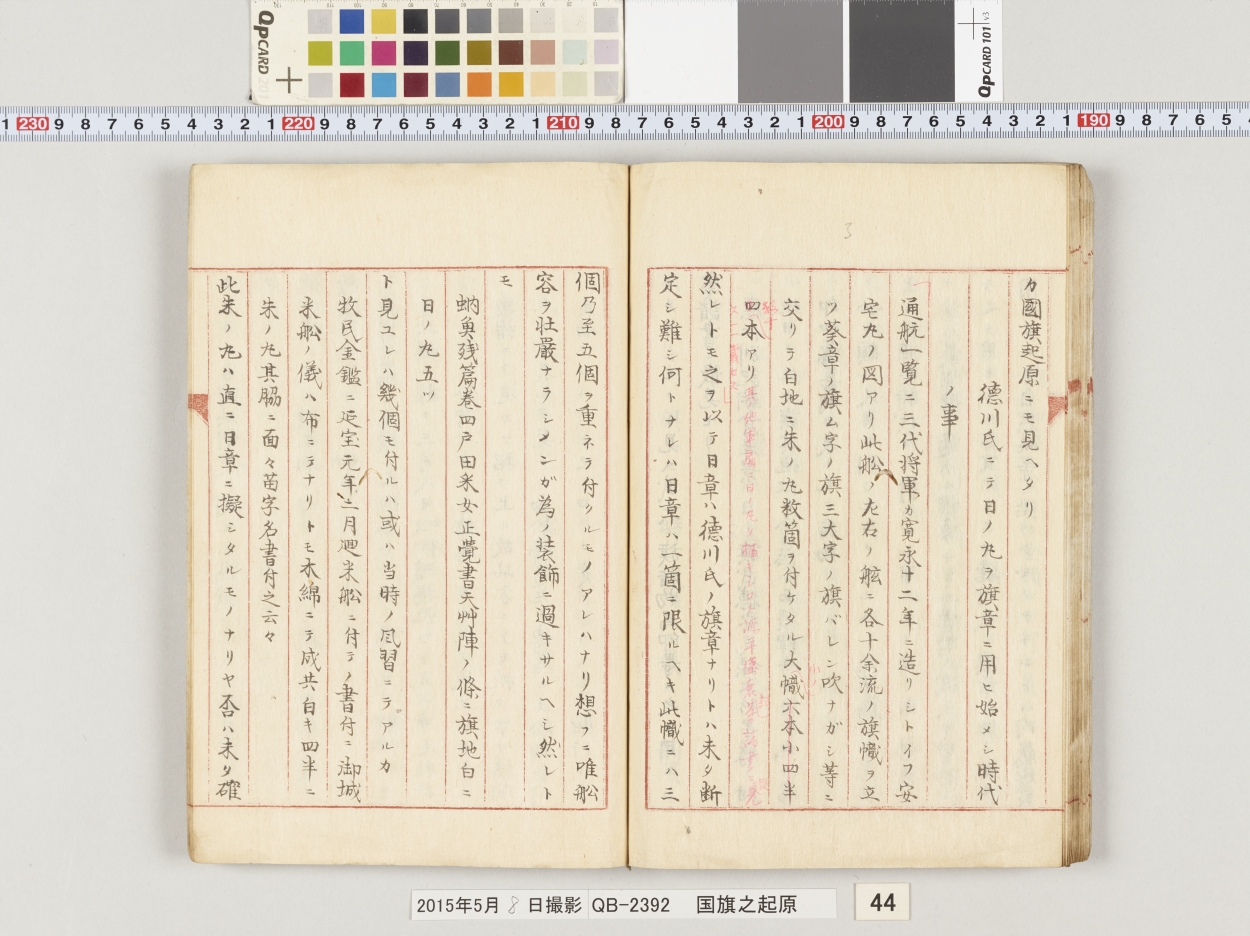 カ國旗起原ニモ見ヘタリ
德川氏ニテ日ノ丸ヲ旗章ニ用ヒ始メシ時代
ノ事
通航一覧ニ三代将軍カ寛永十二年ニ造リシトイフ安
宅丸ノ図アリ此舩ノ左右ノ舷ニ各十余流ノ旗幟ヲ立
ツ葵章ノ旗ム字ノ旗三大字ノ旗バレン吹ナガシ等ニ
交リテ白地ニ朱ノ丸数箇ヲ付ケタル大幟六本小四半
四本アリ
然レトモ之ヲ以テ日章ハ德川氏ノ旗章ナリトハ未タ断
定シ難シ何トナレハ日章ハ一箇ニ限ルヘキ此幟ニハ三
個乃至五個ヲ重ネテ付クルモノアレハナリ想フニ唯舩
容ヲ壮嚴ナラシメンガ為ノ装飾ニ過キサルヘシ然レト
モ
蚋奠残篇巻四戸田釆女正覺書天艸陣ノ條ニ旗地白ニ
日ノ丸五ツ
ト見ユレハ幾個モ付ルハ或ハ当時ノ風習ニテアルカ
牧民金鑑ニ延宝元年二月廻米舩ニ付テノ書付ニ御城
米舩ノ儀ハ布ニテナリトモ木綿ニテ成共白キ四半ニ
朱ノ丸其脇ニ面々苗字名書付之云々
此朱ノ丸ハ直ニ日章ニ擬シタルモノナリヤ否ハ未タ確
QPCARD 101 v3
QPCARD 201
1 230 9 8 7 6 5 4 3 2 1 220 9 8 7 6 5 4 3 2 1 210 9 8 7 6 5 4 3 2 1 200 9 8 7 6 5 4 3 2 1 190 9 8 7 6 5
3
2015年5月8日撮影 QB-2392 国旗之起原
44